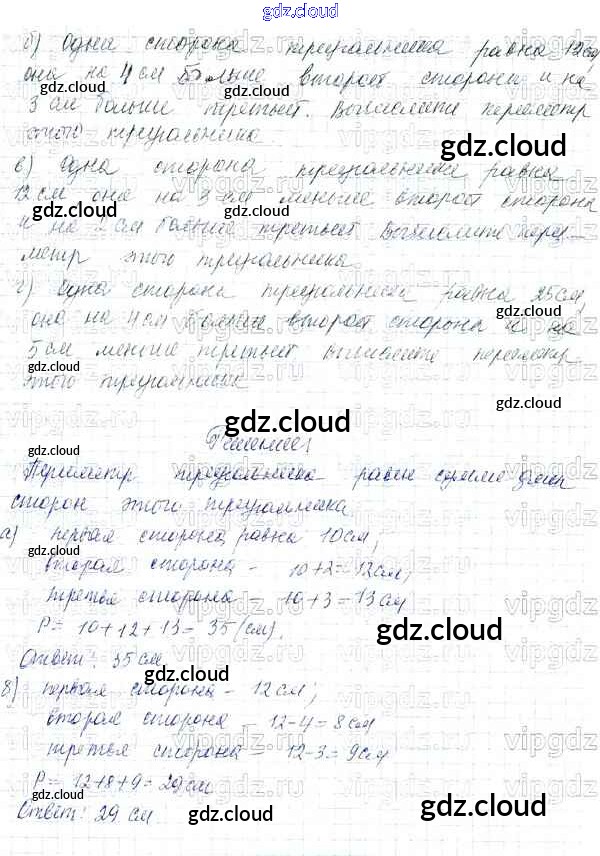 gdz.cloud
б) Одна сторона треугольника равна 12 см,
она на 4 см больше второй стороны и на
3 см больше третьей. Вычислите периметр
этого треугольника.
в) Одна сторона треугольника равна
12 см она на 3 см меньше второй стороны
и на 2 см больше третьей Вычислите пери-
метр этого треугольника
г) Одна сторона треугольника равна 25 см,
она на 4 см больше второй стороны и на
5 см меньше третьей Вычислите периметр
этого треугольника
Решение:
Периметр треугольника равен сумме длин
сторон этого треугольника
а) первая сторона равна 10 см;
вторая сторона - 10+2=12 см;
третья сторона - 10+3=13 см
P= 10+12+13=35 (см).
Ответ: 35 см
б) первая сторона - 12 см;
вторая сторона - 12-4=8 см
третья сторона - 12-3=9 см
P= 12+8+9=29 см
Ответ: 29 см